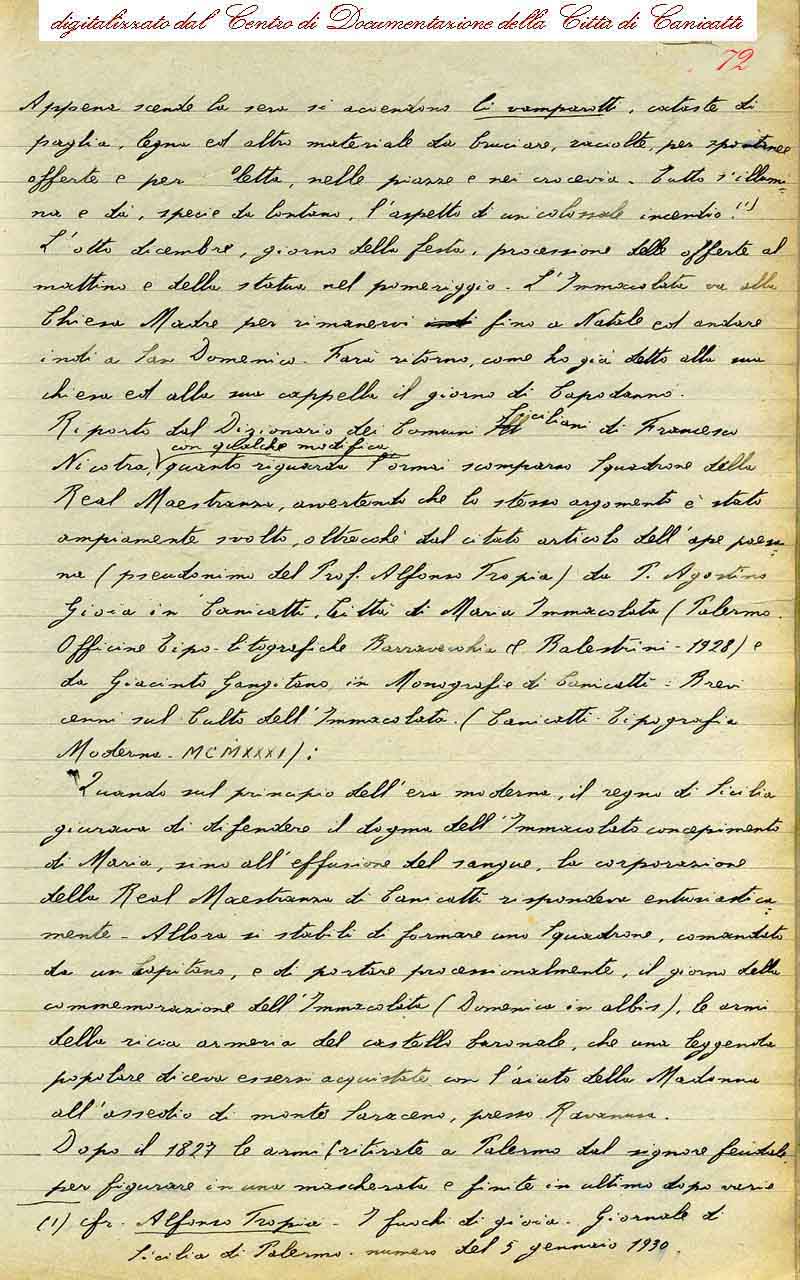 digitalizzato dal Centro di Documentazione della Città di Canicattì
72
Appena scende la sera si accendono li vamparotti, cataste di
paglia, legna ed altro materiale da bruciare, raccolte, per spontanee
offerte e per colletta, nelle piazze e nei crocevia. Tutto s'illumi=
na e dà, specie da lontano, l'aspetto di un colossale incendio.(1)
L'otto dicembre, giorno della festa, processione delle offerte al
mattino e della statua nel pomeriggio. L'Immacolata va alla
Chiesa Madre per rimanervi fino a Natale ed andare
indi a San Domenico. Farà ritorno, come ho già detto alla sua
chiesa ed alla sua cappella il giorno di Capodanno.
Riporto dal Dizionario dei Comuni Siciliani di Francesco
con qualche modifica
Nicotra, quanto riguarda l'ormai scomparso Squadrone della
Real Maestranza, avvertendo che lo stesso argomento è stato
ampiamente svolto, oltrecché dal citato articolo dell'ape paesa=
na (pseudonimo del Prof. Alfonso Tropia) da P. Agostino
Gioia in "Canicattì, Città di Maria Immacolata (Palermo.
Officine Tipo-litografiche Barravecchia & Balestrini - 1928) e
da Giacinto Gangitano in Monografie di Canicattì: Brevi
cenni sul Culto dell'Immacolata. (Canicattì - Tipografia
Moderna - MCMXXXI):
"Quando sul principio dell'era moderna, il regno di Sicilia
giurava di difendere il dogma dell'Immacolato concepimento
di Maria, sino all'effusione del sangue, la corporazione
della Real Maestranza di Canicattì rispondeva entusiastica=
mente - Allora si stabilì di formare uno Squadrone, comandato
da un Capitano, e di portare processionalmente, il giorno della
commemorazione dell'Immacolata (Domenica in albis), le armi
della ricca armeria del castello baronale, che una leggenda
popolare diceva essersi acquistate con l'aiuto della Madonna
all'assedio di monte Saraceno, presso Ravanusa.
Dopo il 1827 le armi (ritirate a Palermo dal signore feudale
per figurare in una mascherata e finite in ultimo dopo varie
(1) cfr. Alfonso Tropia - I fuochi di gioia - Giornale di
Sicilia di Palermo - numero del 5 gennaio 1930.